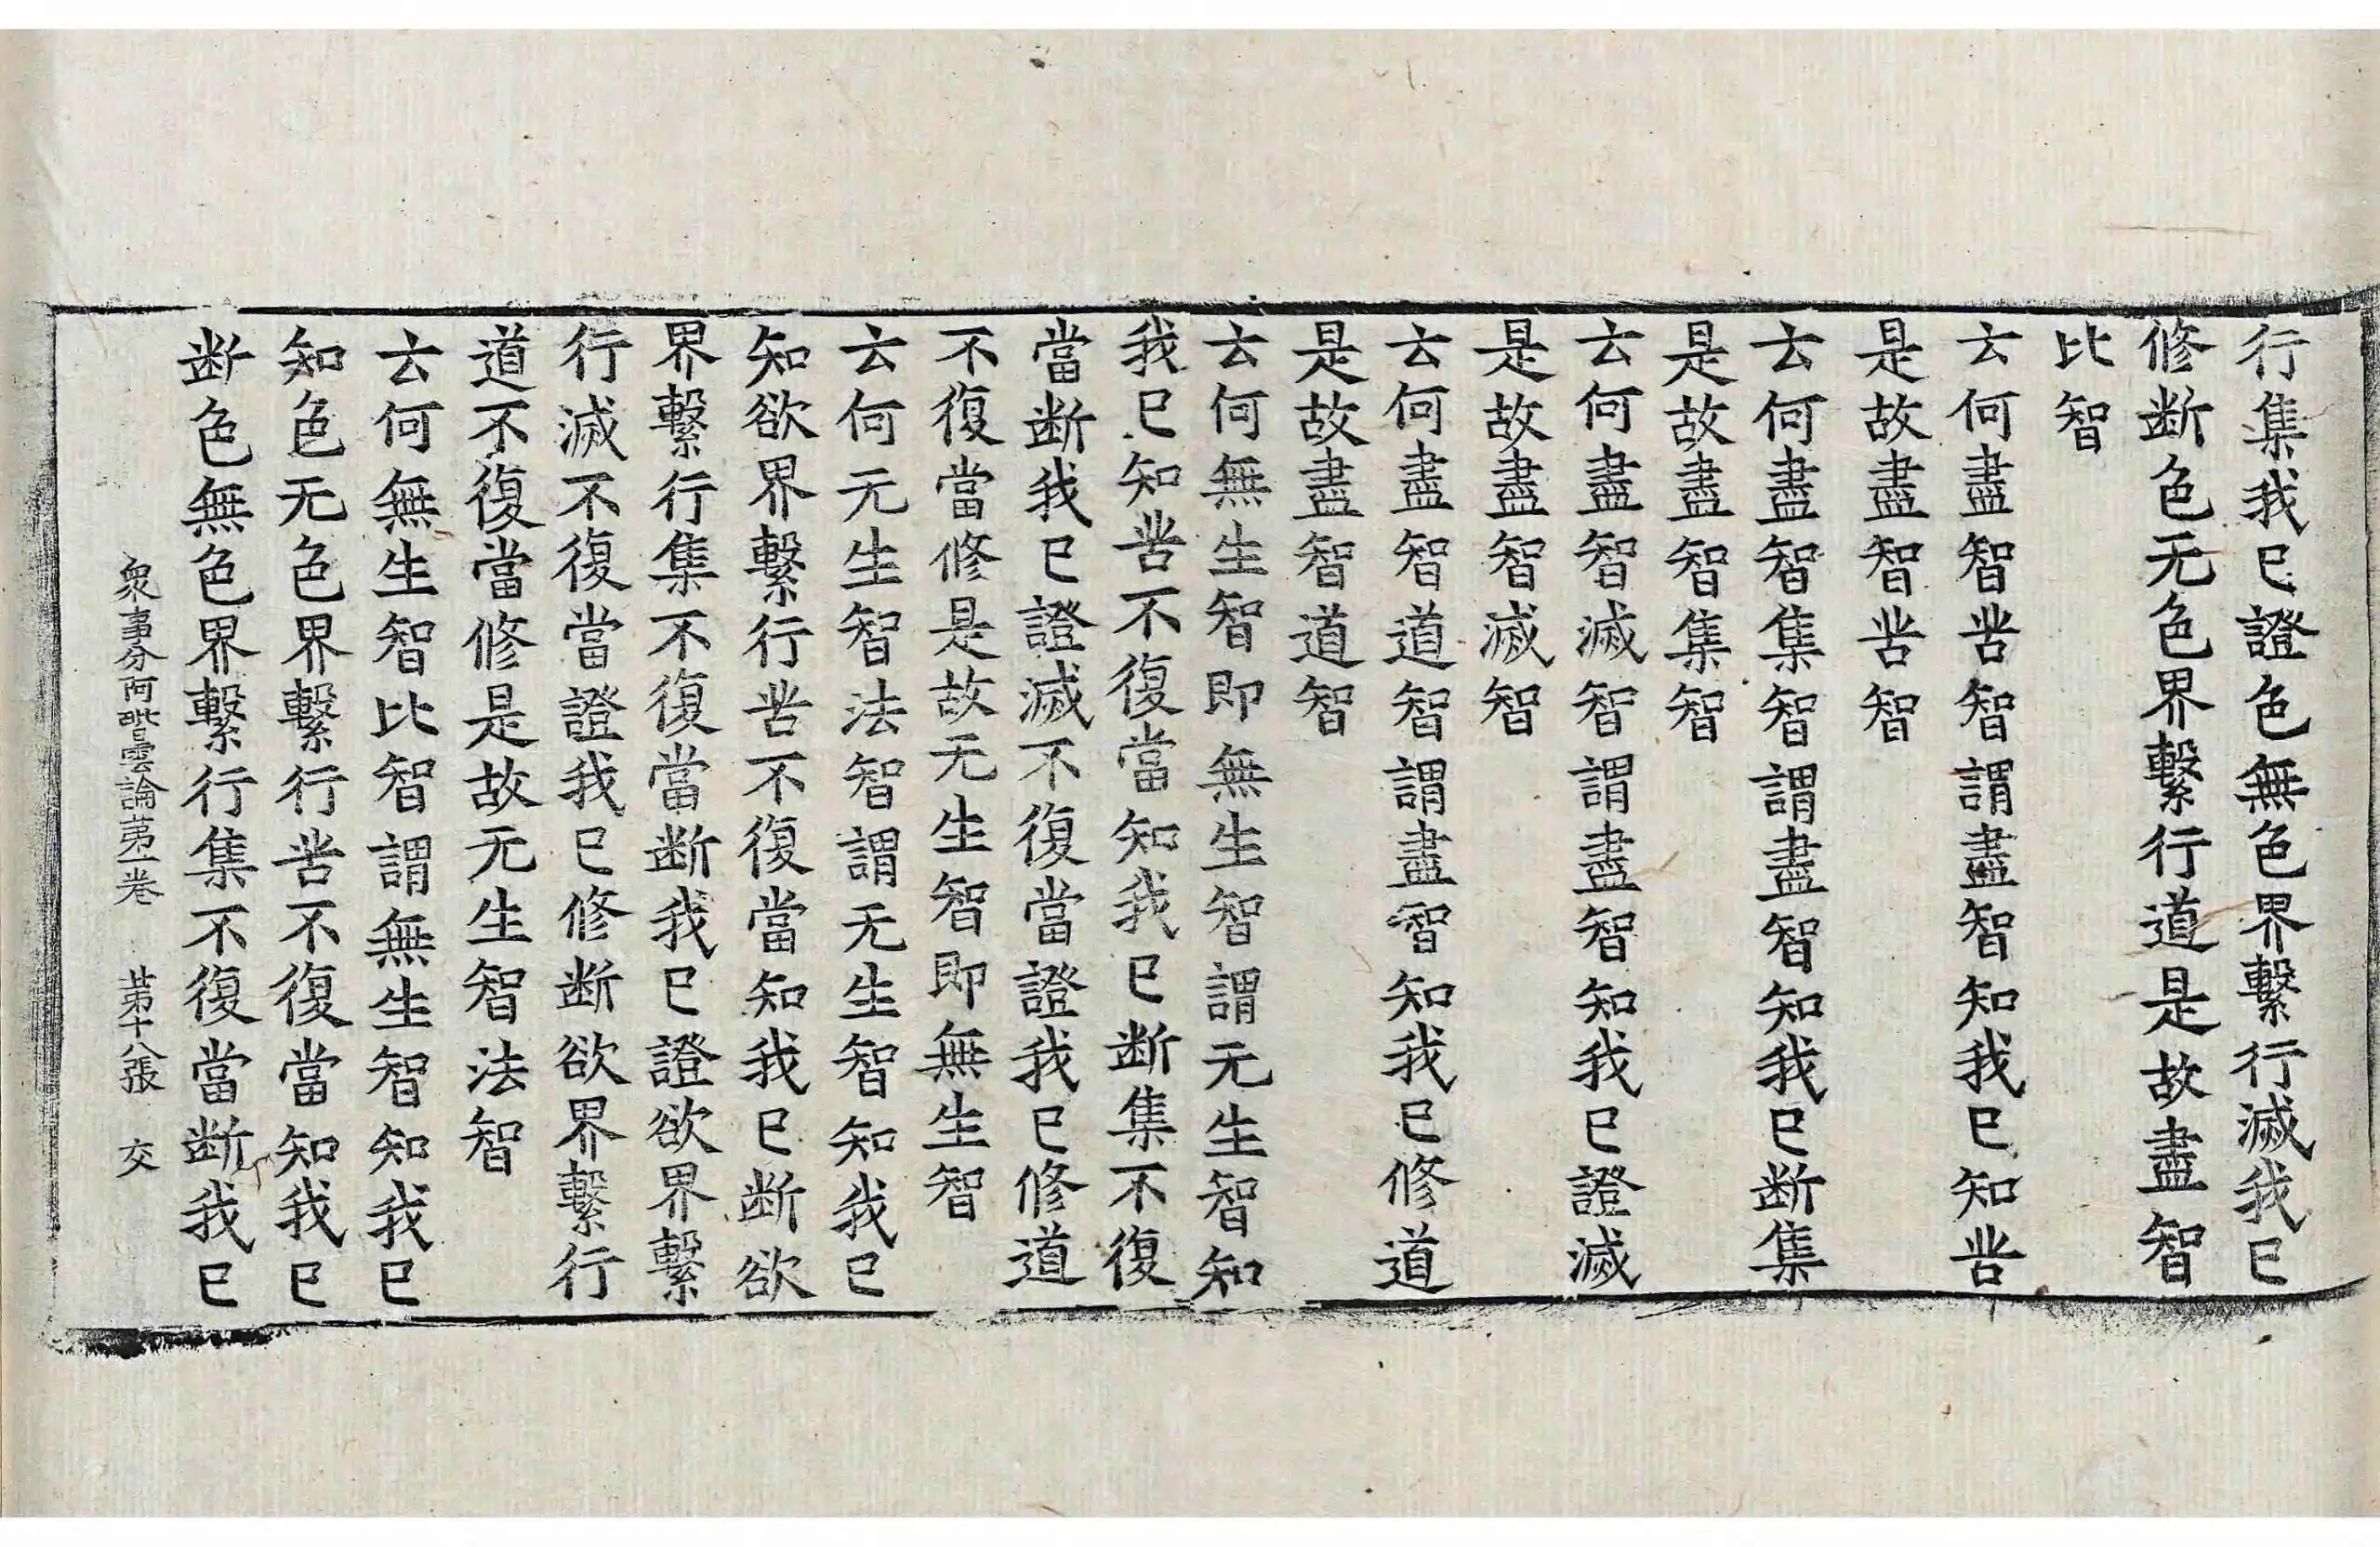 行集我已證色無色界繫行滅我已
修断色无色界繫行道是故盡智
比智
云何盡智苦智謂盡智知我已知苦
是故盡智苦智
云何盡智集智謂盡智知我已断集
是故盡智集智
云何盡智滅智謂盡智知我已證滅
是故盡智滅智
云何盡智道智謂盡智知我已修道
是故盡智道智
云何無生智即無生智謂无生智知
我已知苦不復當知我已断集不復
當断我已證滅不復當證我已修道
不復當修是故无生智即無生智
云何无生智法智謂无生智知我已
知欲界繫行苦不復當知我已断欲
界繫行集不復當断我已證欲界繫
行滅不復當證我已修断欲界繫行
道不復當修是故无生智法智
云何無生智比智謂無生智知我已
知色无色界繫行苦不復當知我已
断色無色界繫行集不復當断我已
衆事分阿毗曇論苐一卷 苐十八張 交